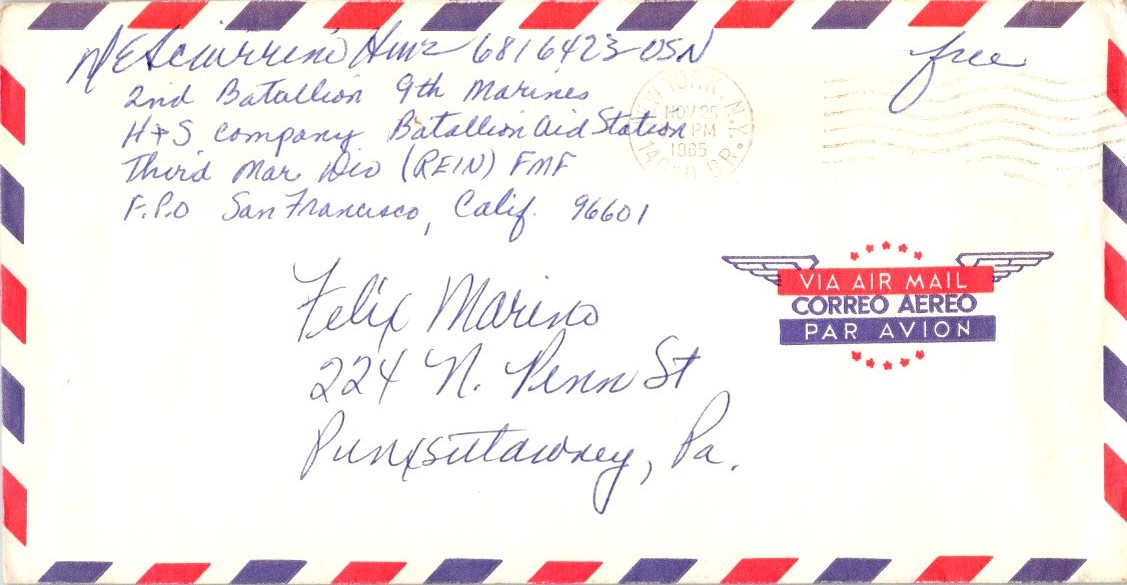 N E Sciurrino Hm2 6816423 USN
2nd Batallion 9th Marines
H+S Company Batallion Aid Station
Third Mar Div (REIN) FMF
F.P.O San Francisco, Calif. 96601
free
NEW YORK, N.Y.
NOV 25
PM
1965
Felix Marino
224 N. Penn St
Punxsutawney, Pa.
VIA AIR MAIL
CORREO AEREO
PAR AVION